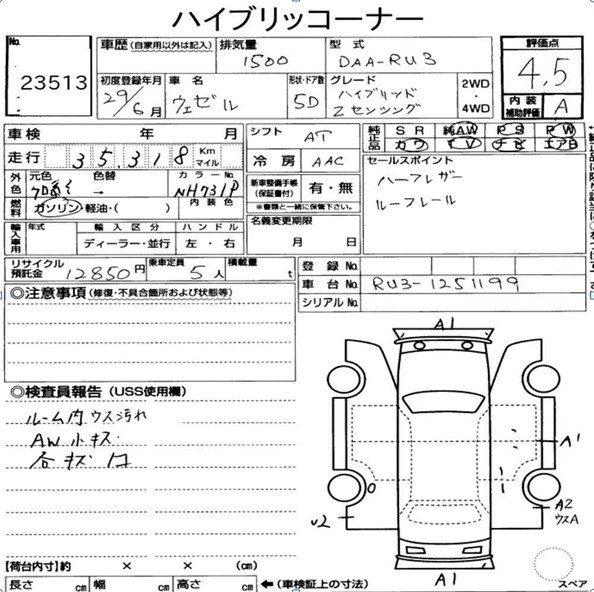 ハイブリッコーナー
No.
23513
車歴 (自家用以外は記入)
排気量
1500
型式
DAA-RU3
評価点
4.5
内装 補助評価
A
初度登録年月
29/6月
車名
ヴェゼル
形状・ドア数
5D
グレード
ハイブリッド
Zセンシング
2WD
・
4WD
車検 年 月
走行 35.318 Km マイル
シフト
AT
冷房
AAC
純正品
SR 純AW PS PW
カワ TV ナビ エアB
セールスポイント
ハーフレザー
ルーフレール
外色
元色
色替
→
カラーNo.
NH731P
燃料
ガソリン・軽油・( )
内装色
新車整備手帳 (保証書付)
有・無
※書類と一緒に保管下さい。
名義変更期限
月 日
輸入車用
年式
輸入区分
ハンドル
ディーラー・並行
左・右
リサイクル預託金
12850円
乗車定員
5人
積載量
t
登録No.
車台No.
RU3-1251199
シリアルNo.
◎注意事項 (修復・不具合箇所および状態等)
◎検査員報告 (USS使用欄)
ルーム内ウス汚れ
AW小キズ
各キズ凹
A1
A1
A2
ウスA
U2
A1
【荷台内寸】約 × × (cm)
長さ cm 幅 cm 高さ cm
←(車検証上の寸法)
スペア